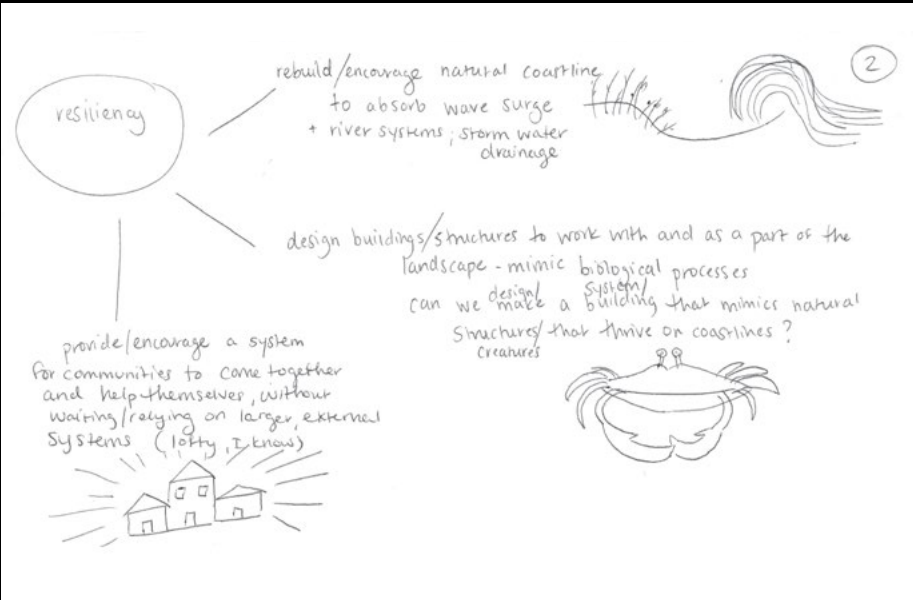 2
resiliency
rebuild/encourage natural coastline
to absorb wave surge
+ river systems; storm water
drainage
design buildings/structures to work with and as a part of the
landscape - mimic biological processes
design/ system/
can we make a building that mimics natural
structures/ that thrive on coastlines?
creatures
provide/encourage a system
for communities to come together
and help themselves, without
waiting/relying on larger, external
systems (lofty, I know)